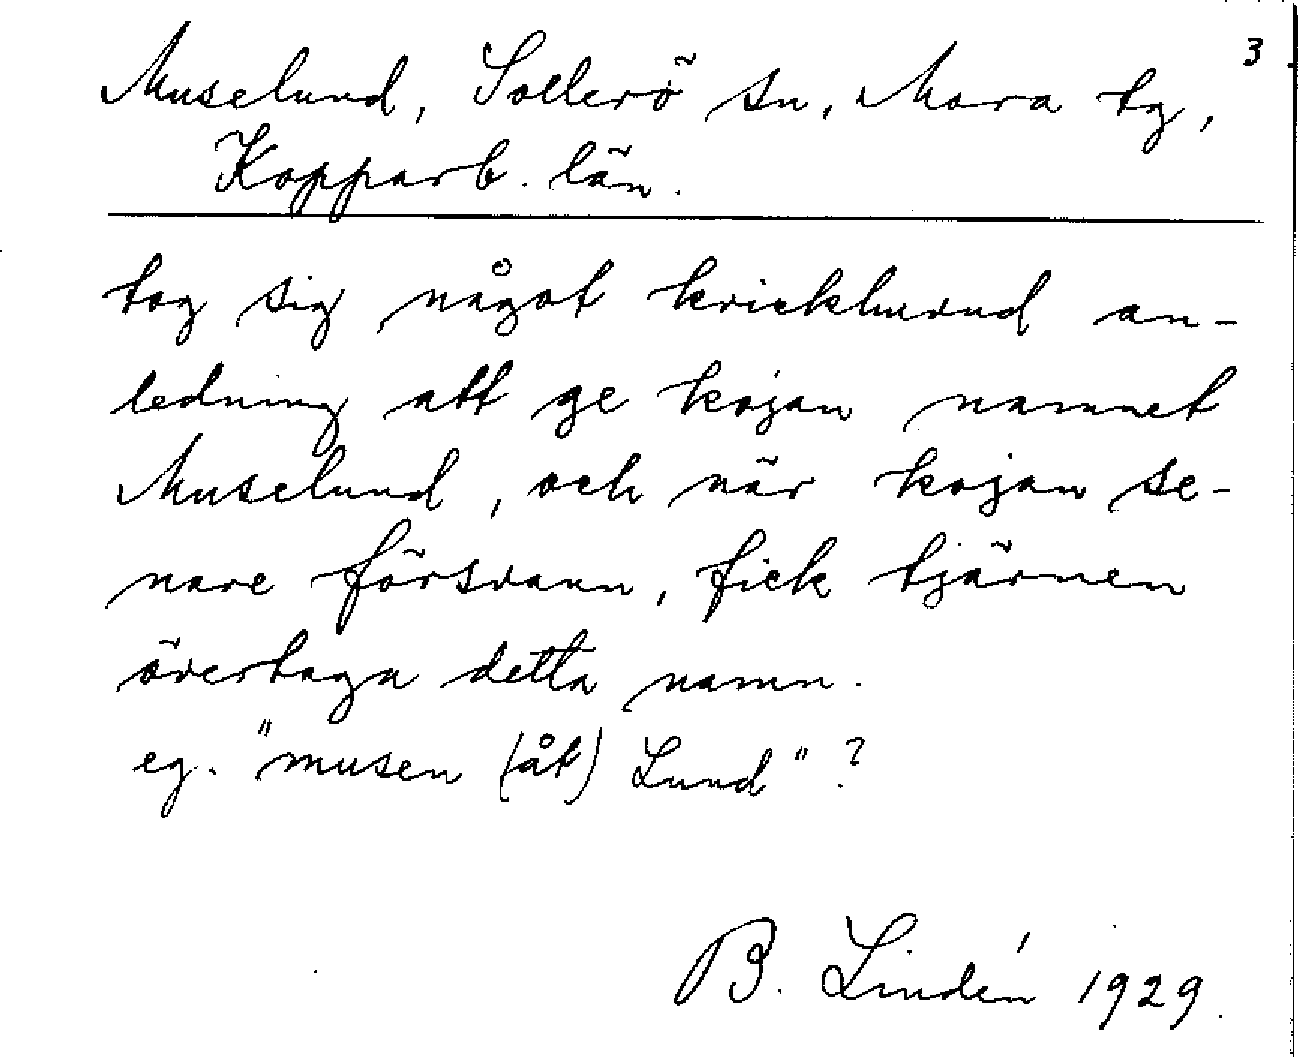 3
Muselund, Sollerö sn, Mora tg,
Kopparb. län.
tog sig något krickhuvud an-
ledning att ge kojan namnet
Muselund, och när kojan se-
nare försvann, fick tjärnen
övertaga detta namn.
eg. "musen (åt) Lund"?
B. Lindén 1929.